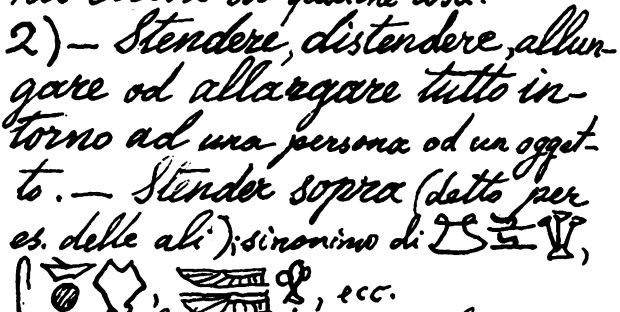 qualche cosa.
2) — Stendere, distendere, allun-
gare od allargare tutto in-
torno ad una persona od un ogget-
to. — Stender sopra (detto per
es. delle ali); sinonimo di ,
, , ecc.